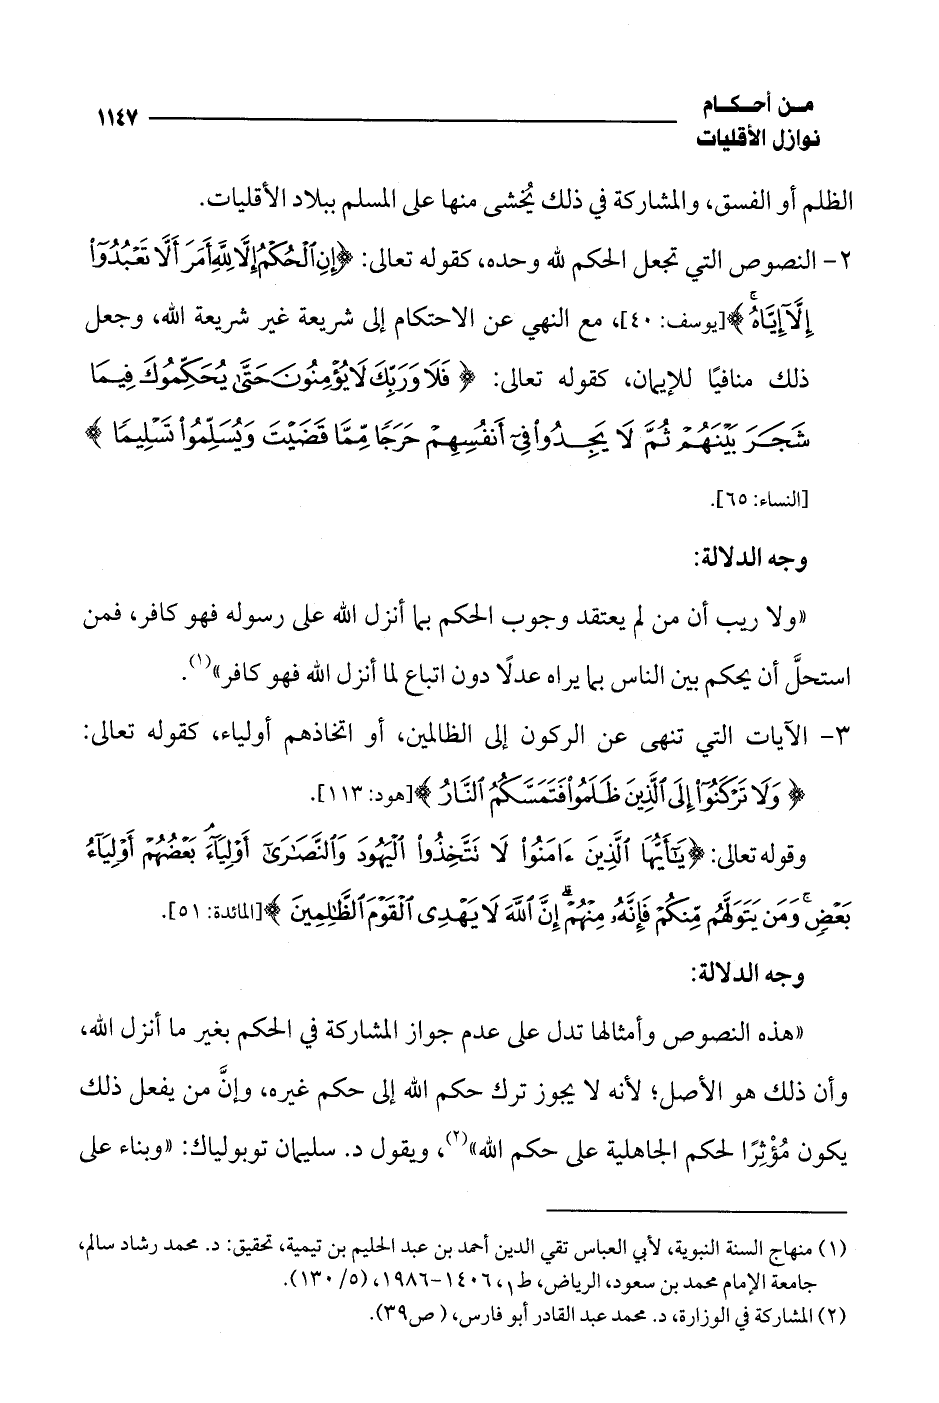 من أحكام
نوازل الأقليات
١١٤٧
الظلم أو الفسق، والمشاركة في ذلك يُخشى منها على المسلم ببلاد الأقليات.
٢- النصوص التي تجعل الحكم لله وحده، كقوله تعالى: ﴿إِنِ ٱلْحُكْمُ إِلَّا لِلَّهِ أَمَرَ أَلَّا تَعْبُدُوٓا۟
إِلَّآ إِيَّاهُ ۚ﴾[يوسف: ٤٠]، مع النهي عن الاحتكام إلى شريعة غير شريعة الله، وجعل
ذلك منافيًا للإيمان، كقوله تعالى: ﴿ فَلَا وَرَبِّكَ لَا يُؤْمِنُونَ حَتَّىٰ يُحَكِّمُوكَ فِيمَا
شَجَرَ بَيْنَهُمْ ثُمَّ لَا يَجِدُوا۟ فِىٓ أَنفُسِهِمْ حَرَجًا مِّمَّا قَضَيْتَ وَيُسَلِّمُوا۟ تَسْلِيمًا ﴾
[النساء: ٦٥].
وجه الدلالة:
«ولا ريب أن من لم يعتقد وجوب الحكم بما أنزل الله على رسوله فهو كافر، فمن
استحلَّ أن يحكم بين الناس بما يراه عدلًا دون اتباع لما أنزل الله فهو كافر»(١).
٣- الآيات التي تنهى عن الركون إلى الظالمين، أو اتخاذهم أولياء، كقوله تعالى:
﴿ وَلَا تَرْكَنُوٓا۟ إِلَى ٱلَّذِينَ ظَلَمُوا۟ فَتَمَسَّكُمُ ٱلنَّارُ ﴾[هود: ١١٣].
وقوله تعالى: ﴿يَـٰٓأَيُّهَا ٱلَّذِينَ ءَامَنُوا۟ لَا تَتَّخِذُوا۟ ٱلْيَهُودَ وَٱلنَّصَـٰرَىٰٓ أَوْلِيَآءَ ۘ بَعْضُهُمْ أَوْلِيَآءُ
بَعْضٍ ۚ وَمَن يَتَوَلَّهُم مِّنكُمْ فَإِنَّهُۥ مِنْهُمْ ۗ إِنَّ ٱللَّهَ لَا يَهْدِى ٱلْقَوْمَ ٱلظَّـٰلِمِينَ ﴾[المائدة: ٥١].
وجه الدلالة:
«هذه النصوص وأمثالها تدل على عدم جواز المشاركة في الحكم بغير ما أنزل الله،
وأن ذلك هو الأصل؛ لأنه لا يجوز ترك حكم الله إلى حكم غيره، وإنَّ من يفعل ذلك
يكون مُؤْثِرًا لحكم الجاهلية على حكم الله»(٢)، ويقول د. سليمان توبولياك: «وبناء على
(١) منهاج السنة النبوية، لأبي العباس تقي الدين أحمد بن عبد الحليم بن تيمية، تحقيق: د. محمد رشاد سالم،
جامعة الإمام محمد بن سعود، الرياض، ط١، ١٤٠٦-١٩٨٦، (٥/ ١٣٠).
(٢) المشاركة في الوزارة، د. محمد عبد القادر أبو فارس، ( ص٣٩).